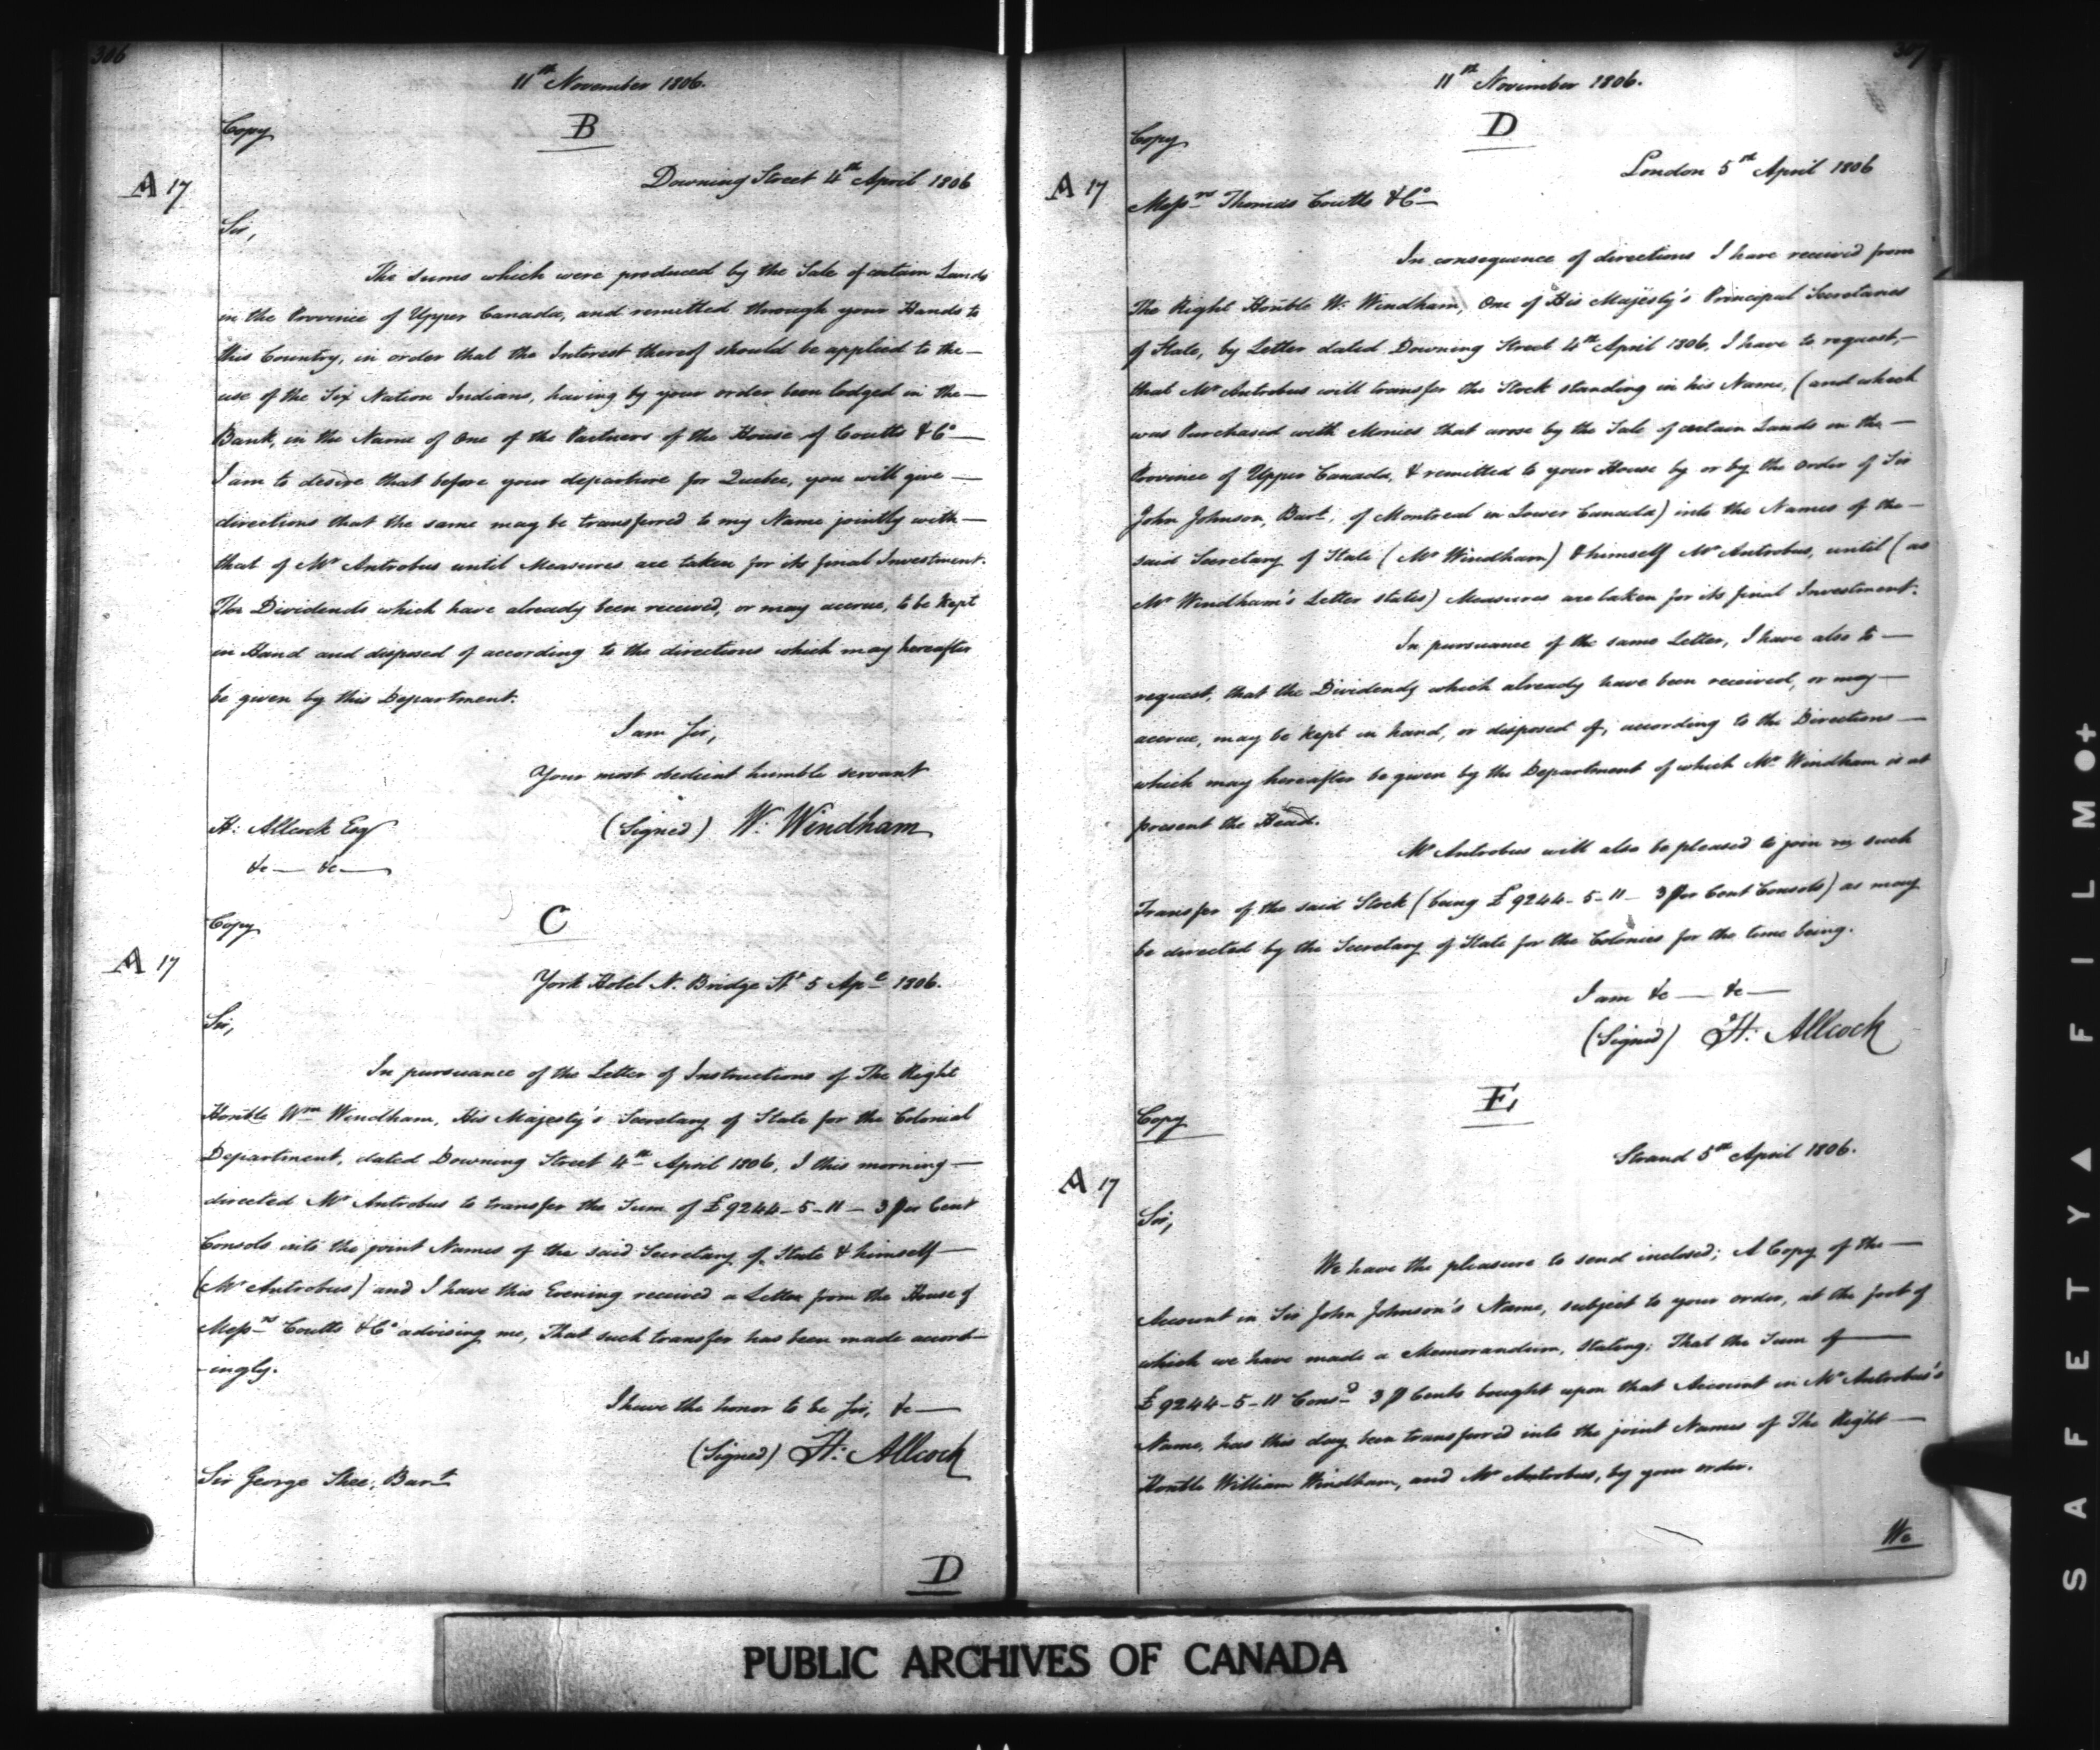 306
11th November 1806.
Copy
B
A 17
Downing Street 4th April 1806
Sir,
The sums which were produced by the Sale of certain Lands
in the Province of Upper Canada, and remitted through your Hands to
this Country, in order that the Interest thereof should be applied to the
use of the Six Nation Indians, having by your order been lodged in the
Bank, in the Name of One of the Partners of the House of Coutts & Co
I am to desire that before your departure for Quebec, you will give
directions that the same may be transferred to my Name jointly with
that of Mr Antrobus until Measures are taken for its final Investment.
The Dividends which have already been received, or may accrue, to be kept
in Hand and disposed of according to the directions which may hereafter
be given by this Department.
I am Sir,
Your most obedient humble servant
(Signed) W: Windham
H: Allcock Esqr
&c &c
Copy
C
A 17
York Hotel N. Bridge St 5 Apl 1806.
Sir,
In pursuance of the Letter of Instructions of The Right
Honble Wm Windham, His Majesty's Secretary of State for the Colonial
Department, dated Downing Street 4th April 1806, I this morning
directed Mr Antrobus to transfer the Sum of £9244-5-11- 3 Per Cent
Consols into the joint Names of the said Secretary of State & himself
(Mr Antrobus) and I have this Evening received a Letter from the House of
Messrs Coutts & Co advising me, That such transfer has been made accord-
-ingly.
I have the honor to be Sir, &c
(Signed) H: Allcock
Sir George Shee, Bart
D
307
11th November 1806.
Copy
D
A 17
London 5th April 1806
Messrs Thomas Coutts & Co
In consequence of directions I have received from
The Right Honble W: Windham, One of His Majesty's Principal Secretaries
of State, by Letter dated Downing Street 4th April 1806, I have to request,
that Mr Antrobus will transfer the Stock standing in his Name, (and which
was Purchased with Monies that arose by the Sale of certain Lands in the
Province of Upper Canada, & remitted to your House by or by the order of Sir
John Johnson, Bart, of Montreal in Lower Canada) into the Names of the
said Secretary of State (Mr Windham) & himself Mr Antrobus, until (as
Mr Windham's Letter states) Measures are taken for its final Investment.
In pursuance of the same Letter, I have also to
request, that the Dividends which already have been received, or may
accrue, may be kept in hand, or disposed of, according to the Directions
which may hereafter be given by the Department of which Mr Windham is at
present the Head.
Mr Antrobus will also be pleased to join in such
Transfer of the said Stock (being £9244-5-11- 3 Per Cent Consols) as may
be directed by the Secretary of State for the Colonies for the time being.
I am &c &c
(Signed) H: Allcock
E
Copy
Strand 5th April 1806.
A 17
Sir,
We have the pleasure to send inclosed; A Copy of the
Account in Sir John Johnson's Name, subject to your order, at the foot of
which we have made a Memorandum, stating; That the Sum of
£9244-5-11 Consd 3 P Cents bought upon that Account in Mr Antrobus's
Name, has this day been transferred into the joint Names of The Right
Honble William Windham, and Mr Antrobus, by your order.
We
PUBLIC ARCHIVES OF CANADA
SAFETY▲FILM●+